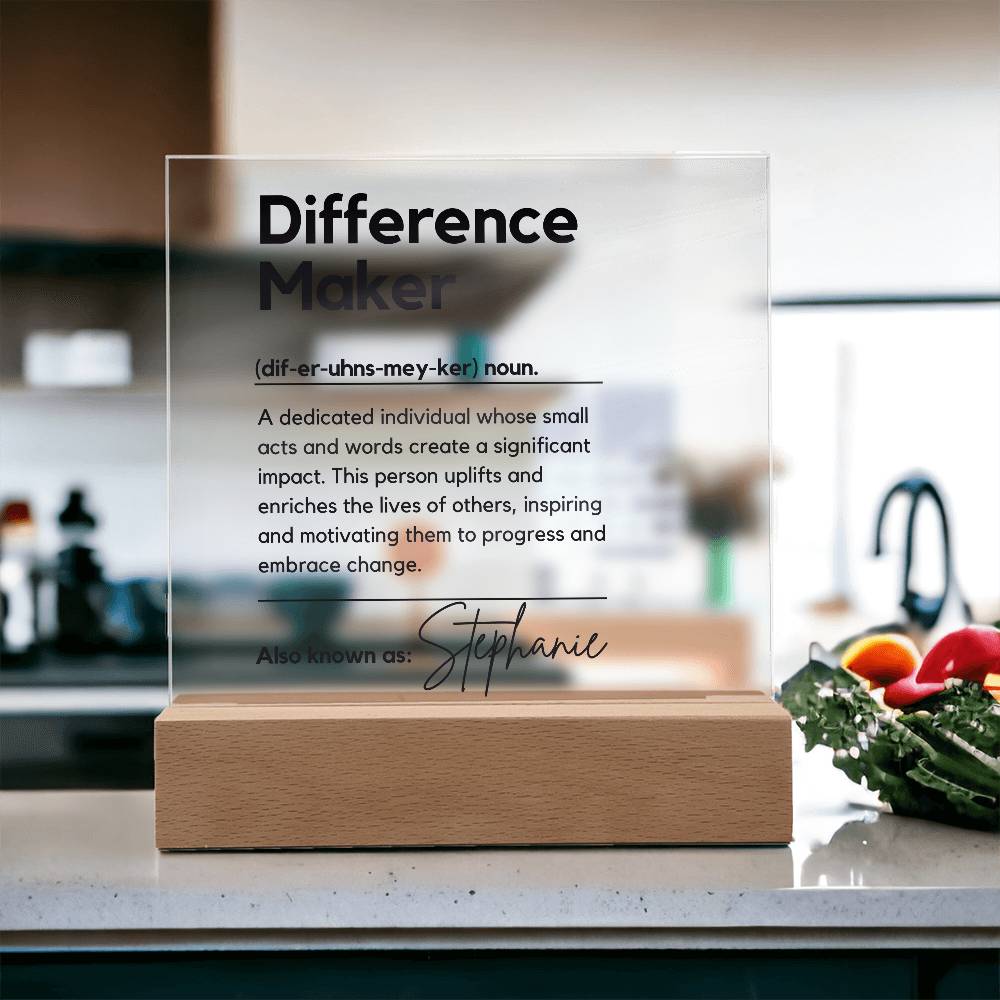 Difference
Maker
(dif-er-uhns-mey-ker) noun.
A dedicated individual whose small
acts and words create a significant
impact. This person uplifts and
enriches the lives of others, inspiring
and motivating them to progress and
embrace change.
Also known as: Stephanie